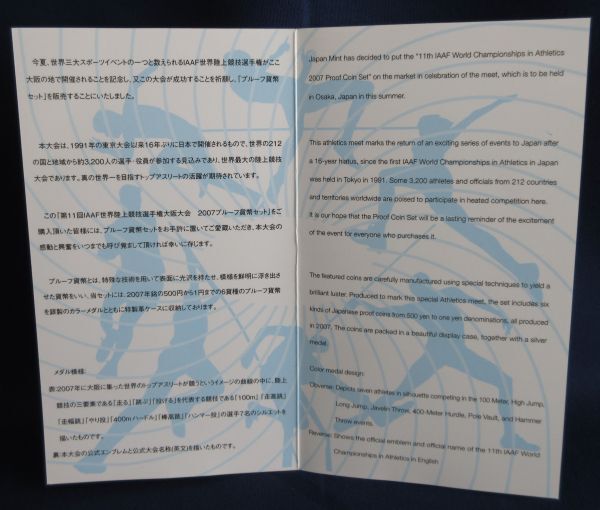 今夏、世界三大スポーツイベントの一つと数えられるIAAF世界陸上競技選手権がここ
大阪の地で開催されることを記念し、又この大会が成功することを祈願し、『プルーフ貨幣
セット』を販売することにいたしました。
本大会は、1991年の東京大会以来16年ぶりに日本で開催されるもので、世界の212
の国と地域から約3,200人の選手・役員が参加する見込みであり、世界最大の陸上競技
大会であります。真の世界一を目指すトップアスリートの活躍が期待されています。
この『第11回IAAF世界陸上競技選手権大阪大会　2007プルーフ貨幣セット』をご
購入頂いた皆様には、プルーフ貨幣セットをお手許に置いてご愛蔵いただき、本大会の
感動と興奮をいつまでも呼び覚まして頂ければ幸いに存じます。
プルーフ貨幣とは、特殊な技術を用いて表面に光沢を持たせ、模様を鮮明に浮き出さ
せた貨幣をいい、当セットには、2007年銘の500円から1円までの6貨種のプルーフ貨幣
を銀製のカラーメダルとともに特製革ケースに収納しております。
メダル模様:
表:2007年に大阪に集った世界のトップアスリートが競うというイメージの曲線の中に、陸上
競技の三要素である「走る」「跳ぶ」「投げる」を代表する競技である「100m」、「走高跳」、
「走幅跳」、「やり投」、「400mハードル」、「棒高跳」、「ハンマー投」の選手7名のシルエットを
描いたものです。
裏:本大会の公式エンブレムと公式大会名称(英文)を描いたものです。
Japan Mint has decided to put the "11th IAAF World Championships in Athletics
2007 Proof Coin Set" on the market in celebration of the meet, which is to be held
in Osaka, Japan in this summer.
This athletics meet marks the return of an exciting series of events to Japan after
a 16-year hiatus, since the first IAAF World Championships in Athletics in Japan
was held in Tokyo in 1991. Some 3,200 athletes and officials from 212 countries
and territories worldwide are poised to participate in heated competition here.
It is our hope that the Proof Coin Set will be a lasting reminder of the excitement
of the event for everyone who purchases it.
The featured coins are carefully manufactured using special techniques to yield a
brilliant luster. Produced to mark this special Athletics meet, the set includes six
kinds of Japanese proof coins from 500 yen to one yen denominations, all produced
in 2007. The coins are packed in a beautiful display case, together with a silver
medal.
Color medal design:
Obverse: Depicts seven athletes in silhouette competing in the 100 Meter, High Jump,
Long Jump, Javelin Throw, 400-Meter Hurdle, Pole Vault, and Hammer
Throw events.
Reverse: Shows the official emblem and official name of the 11th IAAF World
Championships in Athletics in English